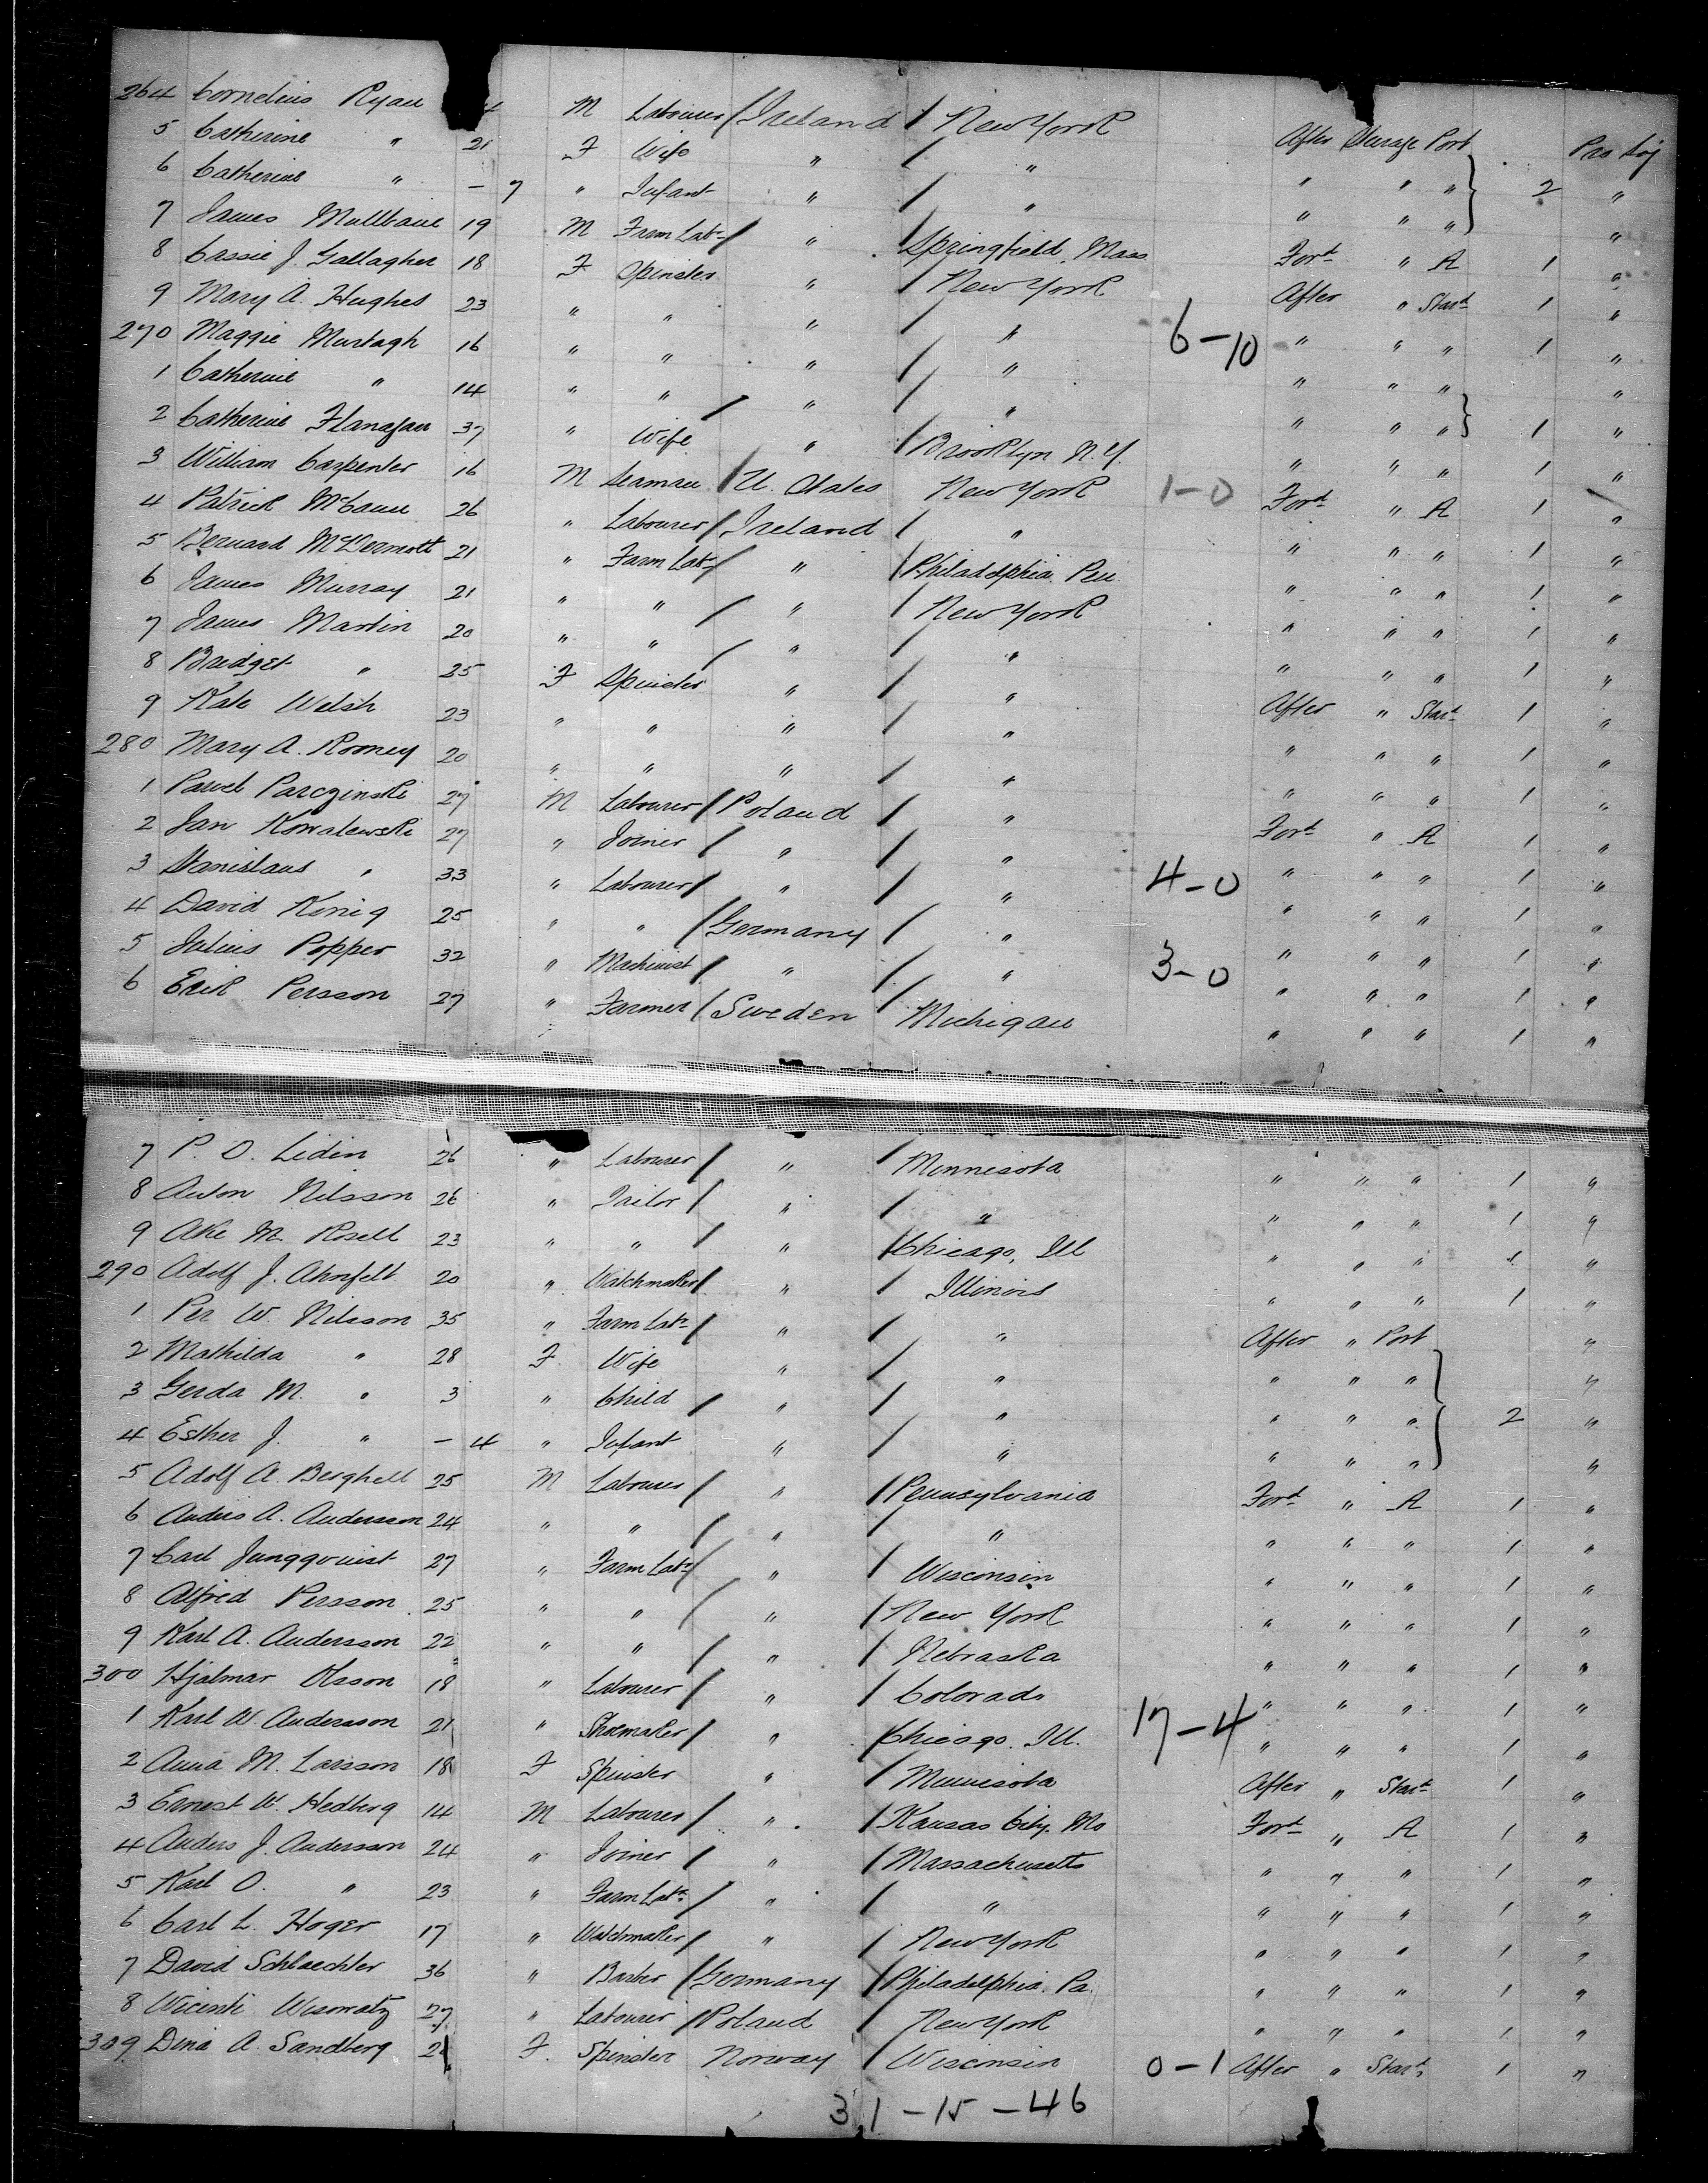 264 Cornelius Ryan 4 M Labourer / Ireland / New York After Steerage Port Pro Soj
5 Catherine " 21 F Wife " / " " " " 2 "
6 Catherine " – 7 " Infant " / " " " " "
7 James 19 M Farm Labr / " / Springfield, Mass Ford " A 1 "
8 Cassie J. Gallagher 18 F Spinster " / New York After " Stard 1 "
9 Mary A. Hughes 23 " " " / " 6–10 " " " 1 "
270 Maggie Murtagh 16 " " " / " " " " "
1 Catherine " 14 " " / " / " " " " 1 "
2 Catherine Flanagan 37 " Wife " / Brooklyn N.Y. " " " 1 "
3 William Carpenter 16 M Seaman / U. States New York 1–0 Ford " A 1 "
4 Patrick McCann 26 " Labourer / Ireland / " " " " 1 "
5 Bernard McDermott 21 " Farm Labr / " / Philadelphia. Pen. " " " 1 "
6 James Murray 21 " " / " / New York " " " 1 "
7 James Martin 20 " " / " / " " " " 1 "
8 Bridget " 25 F Spinster " / " After " Stard 1 "
9 Kate Welsh 23 " " " / " " " " 1 "
280 Mary A. Rooney 20 " " " / " " " " 1 "
1 Pawel Parczinski 27 M Labourer / Poland / " Ford " A 1 "
2 Jan Kowalewski 27 " Joiner / " / " " " " 1 "
3 Stanislaus " 33 " Labourer / " / " 4–0 " " " 1 "
4 David König 25 " " / Germany / " " " " 1 "
5 Julius Popper 32 " Machinist / " / " 3–0 " " " 1 "
6 Erik Persson 27 " Farmer / Sweden / Michigan " " " 1 "
7 P. O. Lidin 26 " Labourer / " / Minnesota " " " 1 "
8 Anton Nilsson 26 " Tailor / " / " " " " 1 "
9 Ake M. Rosell 23 " " / " / Chicago, Ill " " " 1 "
290 Adolf J. Ahnfelt 20 " Watchmaker / " / Illinois " " " 1 "
1 Per W. Nilsson 35 " Farm Labr / " / " After " Port "
2 Mathilda " 28 F. Wife " / " " " " "
3 Gerda M. " 3 " Child / " / " " " " 2 "
4 Esther J. " – 4 " Infant " / " " " " "
5 Adolf A. Berghell 25 M Labourer / " / Pennsylvania Ford " A 1 "
6 Anders A. Andersson 24 " " / " / " " " " 1 "
7 Carl Jungqvuist 27 " Farm Labr / " / Wisconsin " " " 1 "
8 Alfred Persson 25 " " / " / New York " " " 1 "
9 Karl A. Andersson 22 " " / " / Nebraska " " " 1 "
300 Hjalmar Olsson 18 " Labourer / " / Colorado " " " 1 "
1 Karl W. Andersson 21 " Shoemaker / " / Chicago. Ill. 17–4 " " " 1 "
2 Anna M. Larsson 18 F Spinster " / Minnesota After " Stard 1 "
3 Ernest W. Hedberg 14 M Labourer / " / Kansas City. Mo Ford " A 1 "
4 Anders J. Andersson 24 " Joiner / " / Massachusetts " " " 1 "
5 Karl O. " 23 " Farm Labr / " / " " " " 1 "
6 Carl L. Hoger 17 " Watchmaker / " / New York " " " 1 "
7 David Schlaechter 36 " Barber / Germany / Philadelphia. Pa. " " " 1 "
8 Wicenti 27 " Labourer / Poland / New York " " " 1 "
309 Dina A. Sandberg 21 F. Spinster Norway / Wisconsin 0–1 After " Stard 1 "
31–15–46